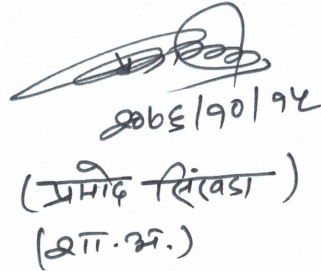 २०७६/१०/१५
(प्रमोद सिंखडा)
(शा.अ.)